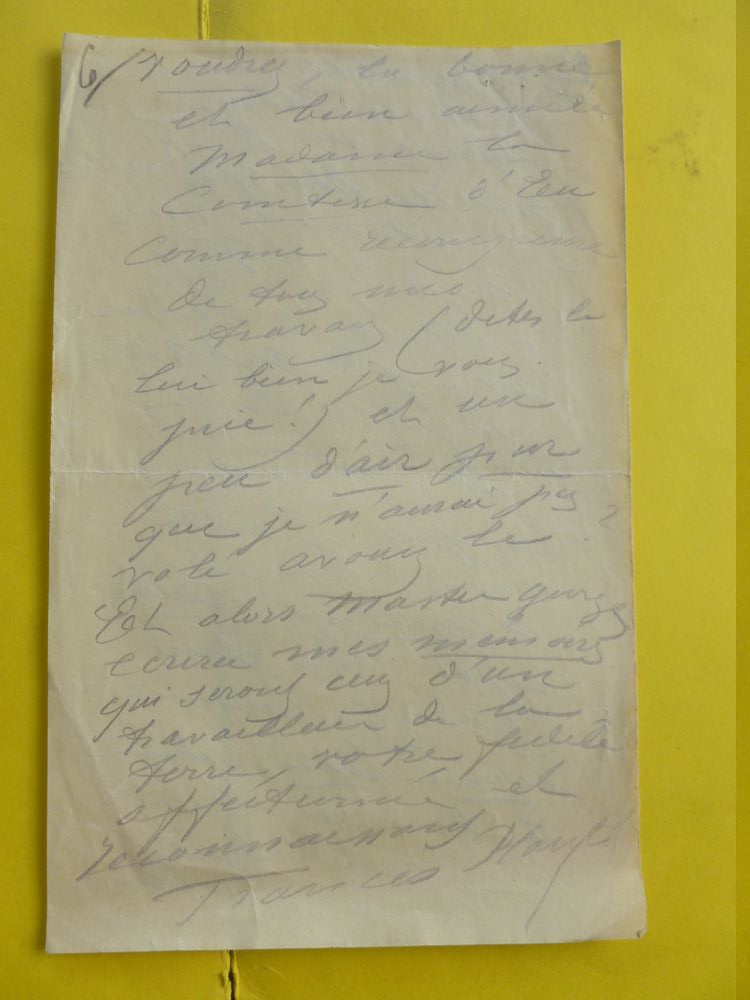 6/ voudrez, la bonne
et bien aimée
Madame la
Comtesse d'Eu
comme
de tous mes
travaux (dites le
lui bien je vous
prie!) et un
peu d'air pur
que je n'aurai pas
volé avouez le ?
Et alors Master
ecrira mes mémoires
qui seront ceux d'un
travailleur de la
terre, votre fidèle
affectionné et
reconnaissant